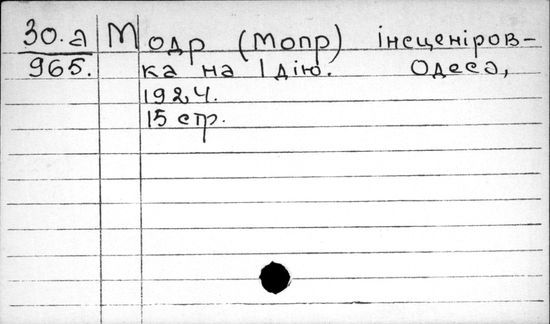 30.а Модр (Мопр) інсценіров-
965. ка на 1 дію. Одеса,
1924.
15 стр.